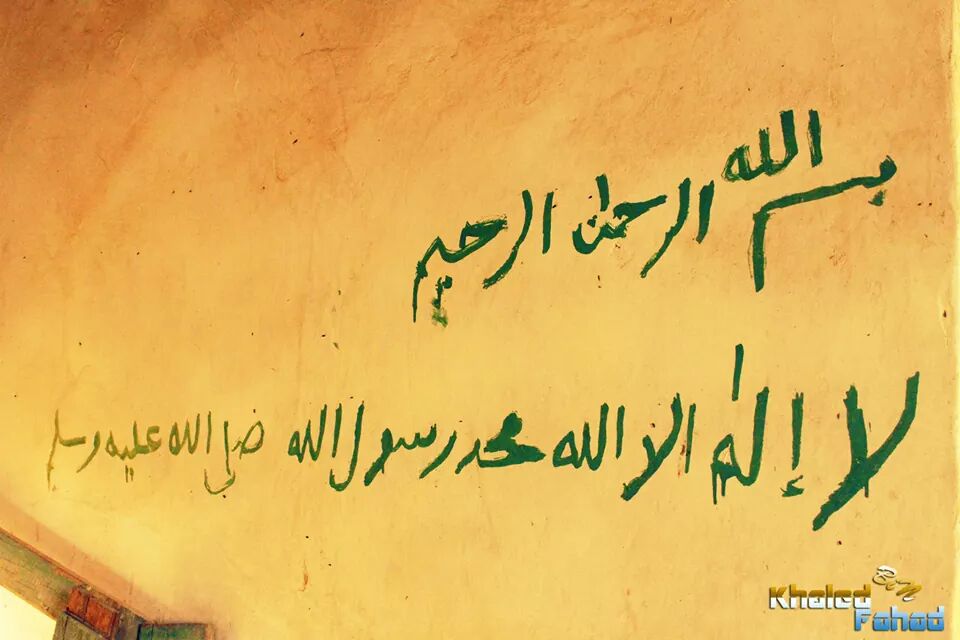 بسم الله الرحمن الرحيم
لا إله الا الله محمد رسول الله صلى الله عليه وسلم
Khaled Bin Fahad